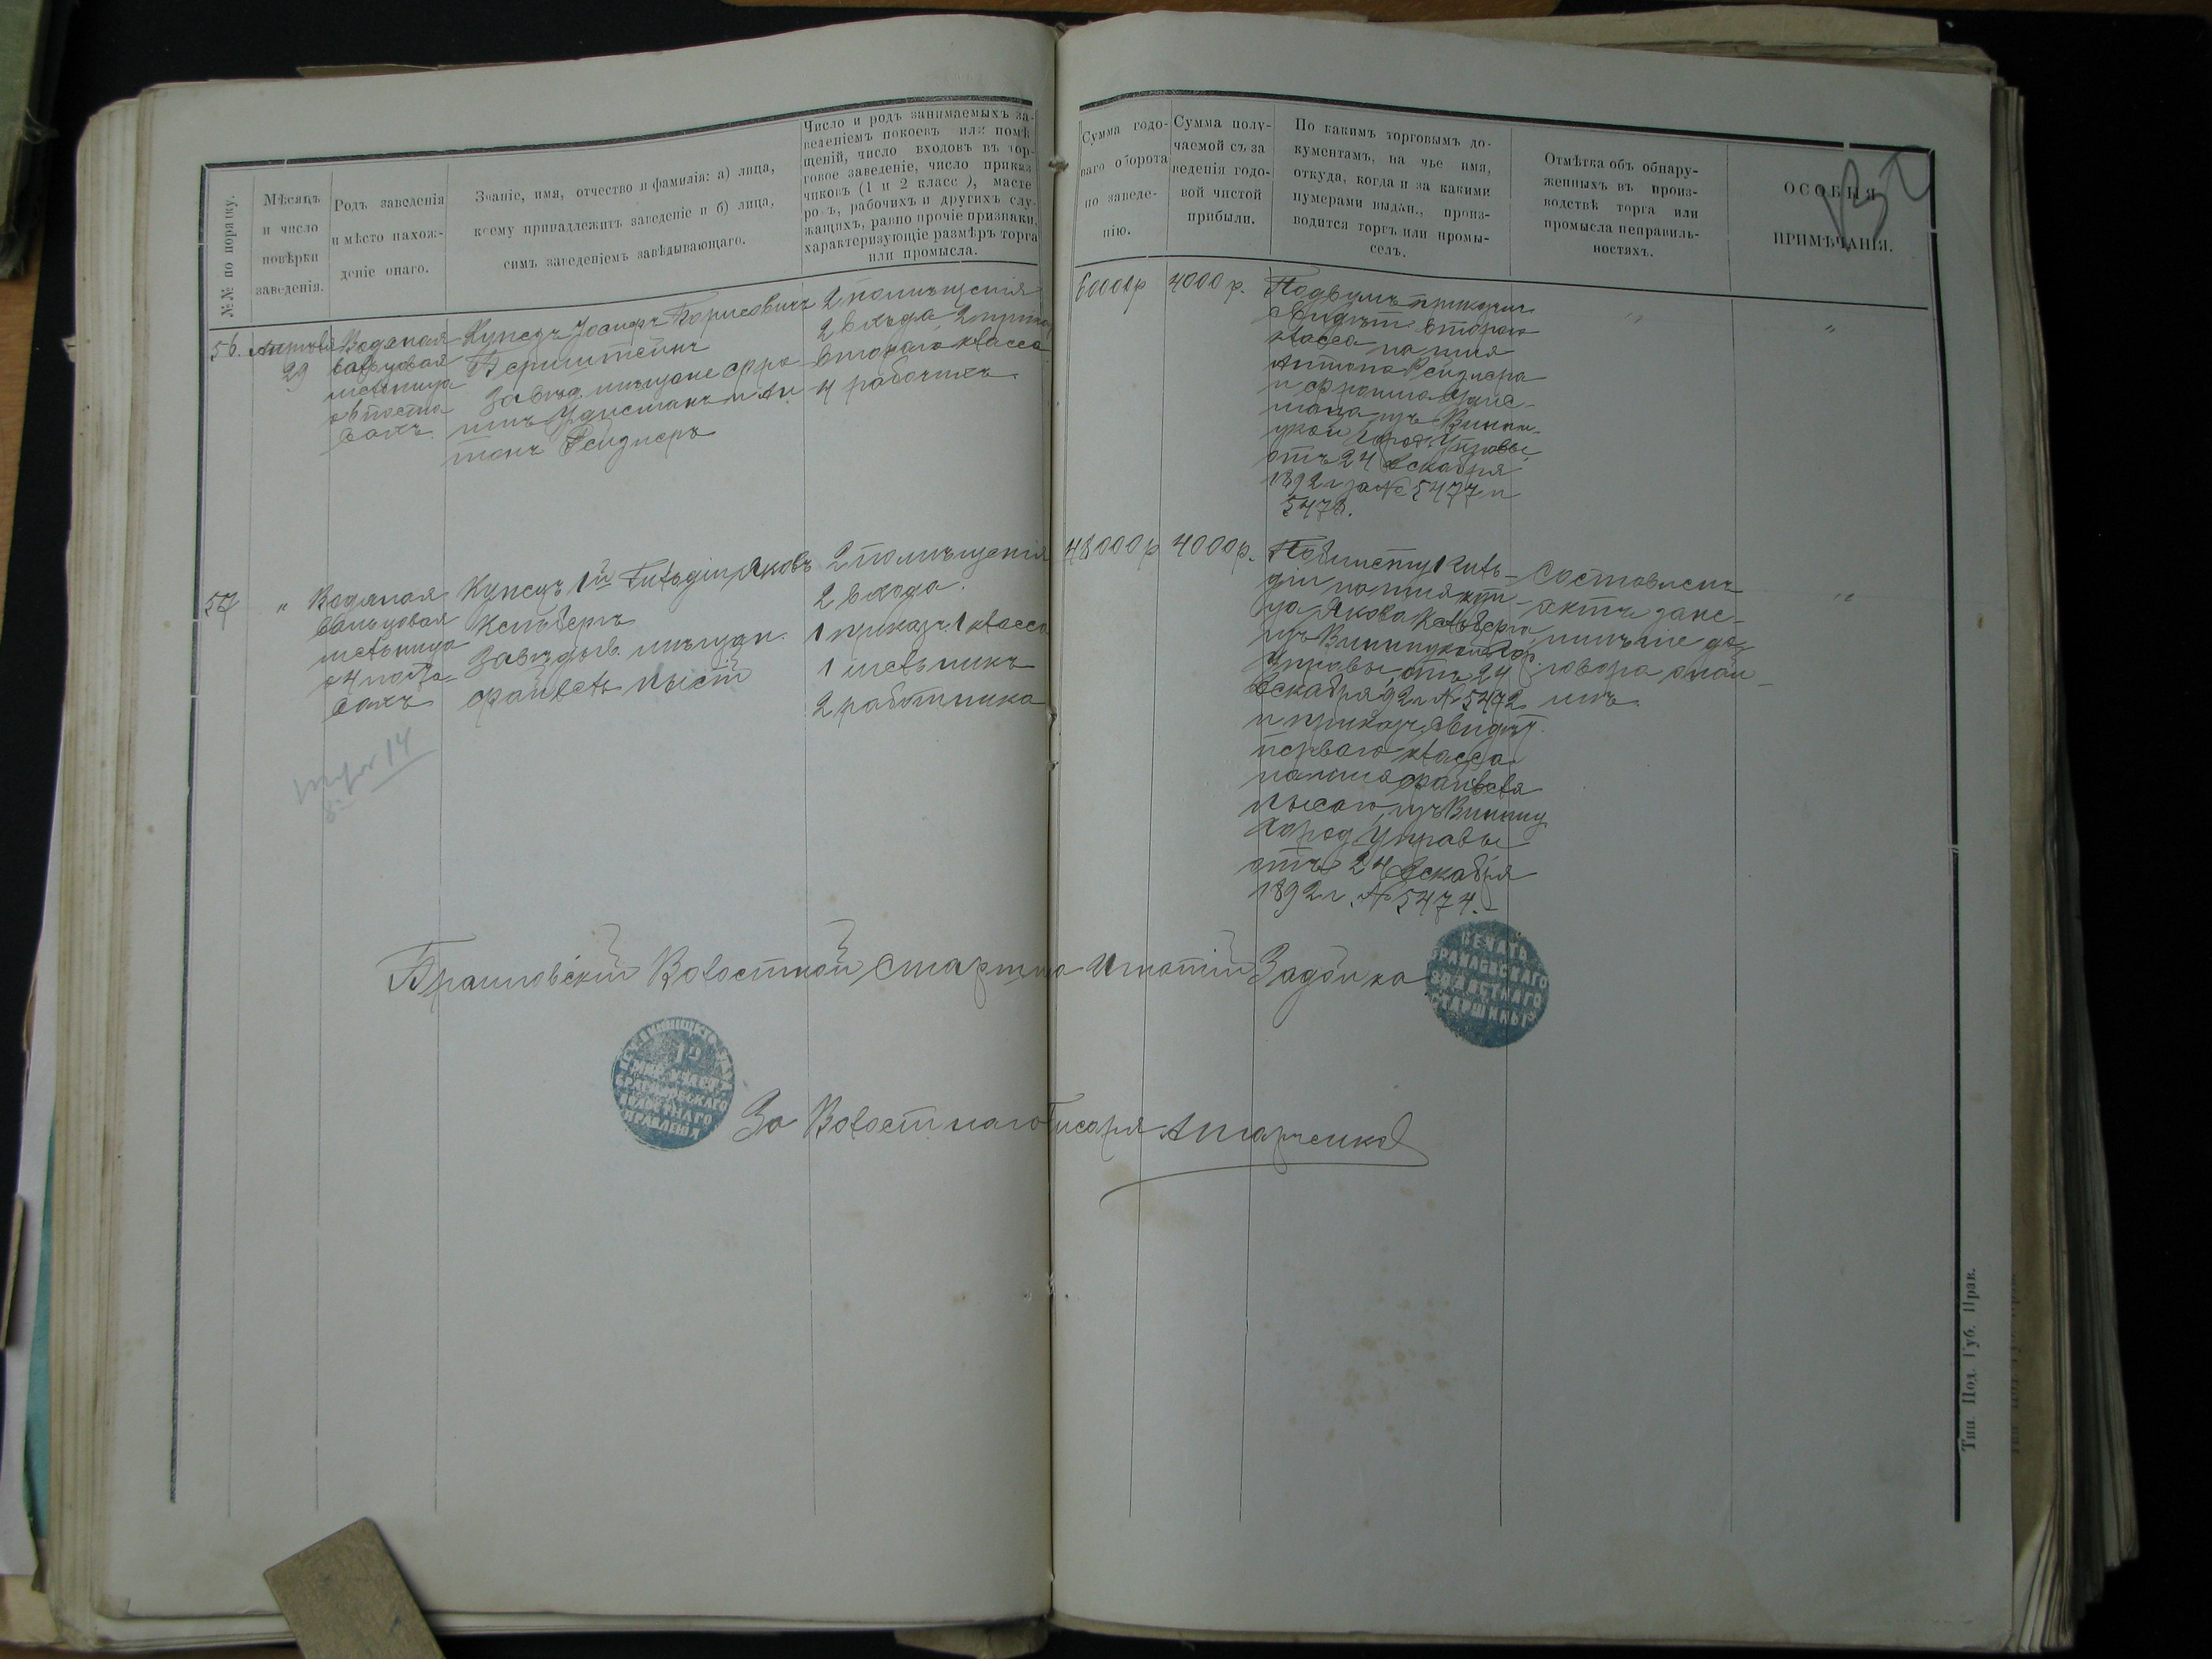 №№ по порядку.
Мѣсяцъ
и число
повѣрки
заведенія.
Родъ заведенія
и мѣсто нахож-
деніе онаго.
Званіе, имя, отчество и фамилія: а) лица,
коему принадлежитъ заведеніе и б) лица,
симъ заведеніемъ завѣдывающаго.
Число и родъ занимаемыхъ за-
веденіемъ покоевъ или помѣ
щеній, число входовъ въ тор-
говое заведеніе, число приказ
чиковъ (1 и 2 класс), масте
ровъ, рабочихъ и другихъ слу-
жащихъ, равно прочіе признаки,
характеризующіе размѣръ торга
или промысла.
Сумма годо-
ваго оборота
по заведе-
нію.
Сумма полу-
чаемой съ за
веденія годо-
вой чистой
прибыли.
По какимъ торговымъ до-
кументамъ, на чье имя,
откуда, когда и за какими
нумерами выдан., произ-
водится торгъ или промы-
селъ.
Отмѣтка объ обнару-
женныхъ въ произ-
водствѣ торга или
промысла неправиль-
ностяхъ.
ОСОБЫЯ
ПРИМѢЧАНІЯ.
56.
Апрѣля
29
Водяная
вальцовая
мельница
о 6 поста
вахъ
Купецъ Іосифъ Борисовичъ
Бернштейнъ
Завѣд. мѣщане Фро
имъ Уйисманъ и Ан
тонъ Рейднеръ
2 помѣщенія
2 входа, 2 прика
втораго класса
4 рабочихъ.
60000 р
4000 р.
По двумъ приказч
свидѣт второго
класса на имя
Антона Рейднера
и Фроима
мана изъ Винни-
цкой Город. Управы
отъ 24 декабря
1892 г за № 5477 и
5478.
"
"
57
"
Водяная
вальцовая
мельница
о 4 поста-
вахъ
Купецъ 1й Гильдіи Яковъ
Кельбергъ
Завѣдыв. мѣщан.
Файвель Лысій
2 помѣщенія
2 входа.
1 приказч. 1 класса
1 мельникъ
2 работника
48000 р
4000 р.
По билету 1 гиль-
діи на имя куп-
ца Якова Кельберга
изъ Винницкой Гор.
Управы, отъ 24
декабря 92 г № 5472
и приказч. свидѣт.
перваго класса
на имя Файвеля
Лысаго, изъ Винниц
Город Управы
отъ 24 декабря
1892 г. № 5474.
Составленъ
актъ за не-
имѣніе до-
говора о най-
мѣ.
"
14
Браиловскій Волостной Старшина Игнатій Задойко
ПЕЧАТЬ
БРАИЛОВСКАГО
ВОЛОСТНАГО
СТАРШИНЫ
БРАИЛОВСКАГО
ВОЛОСТНАГО
ПРАВЛЕНІЯ
За Волостнаго Писаря А Марченко
Тип. Под. Губ. Прав.